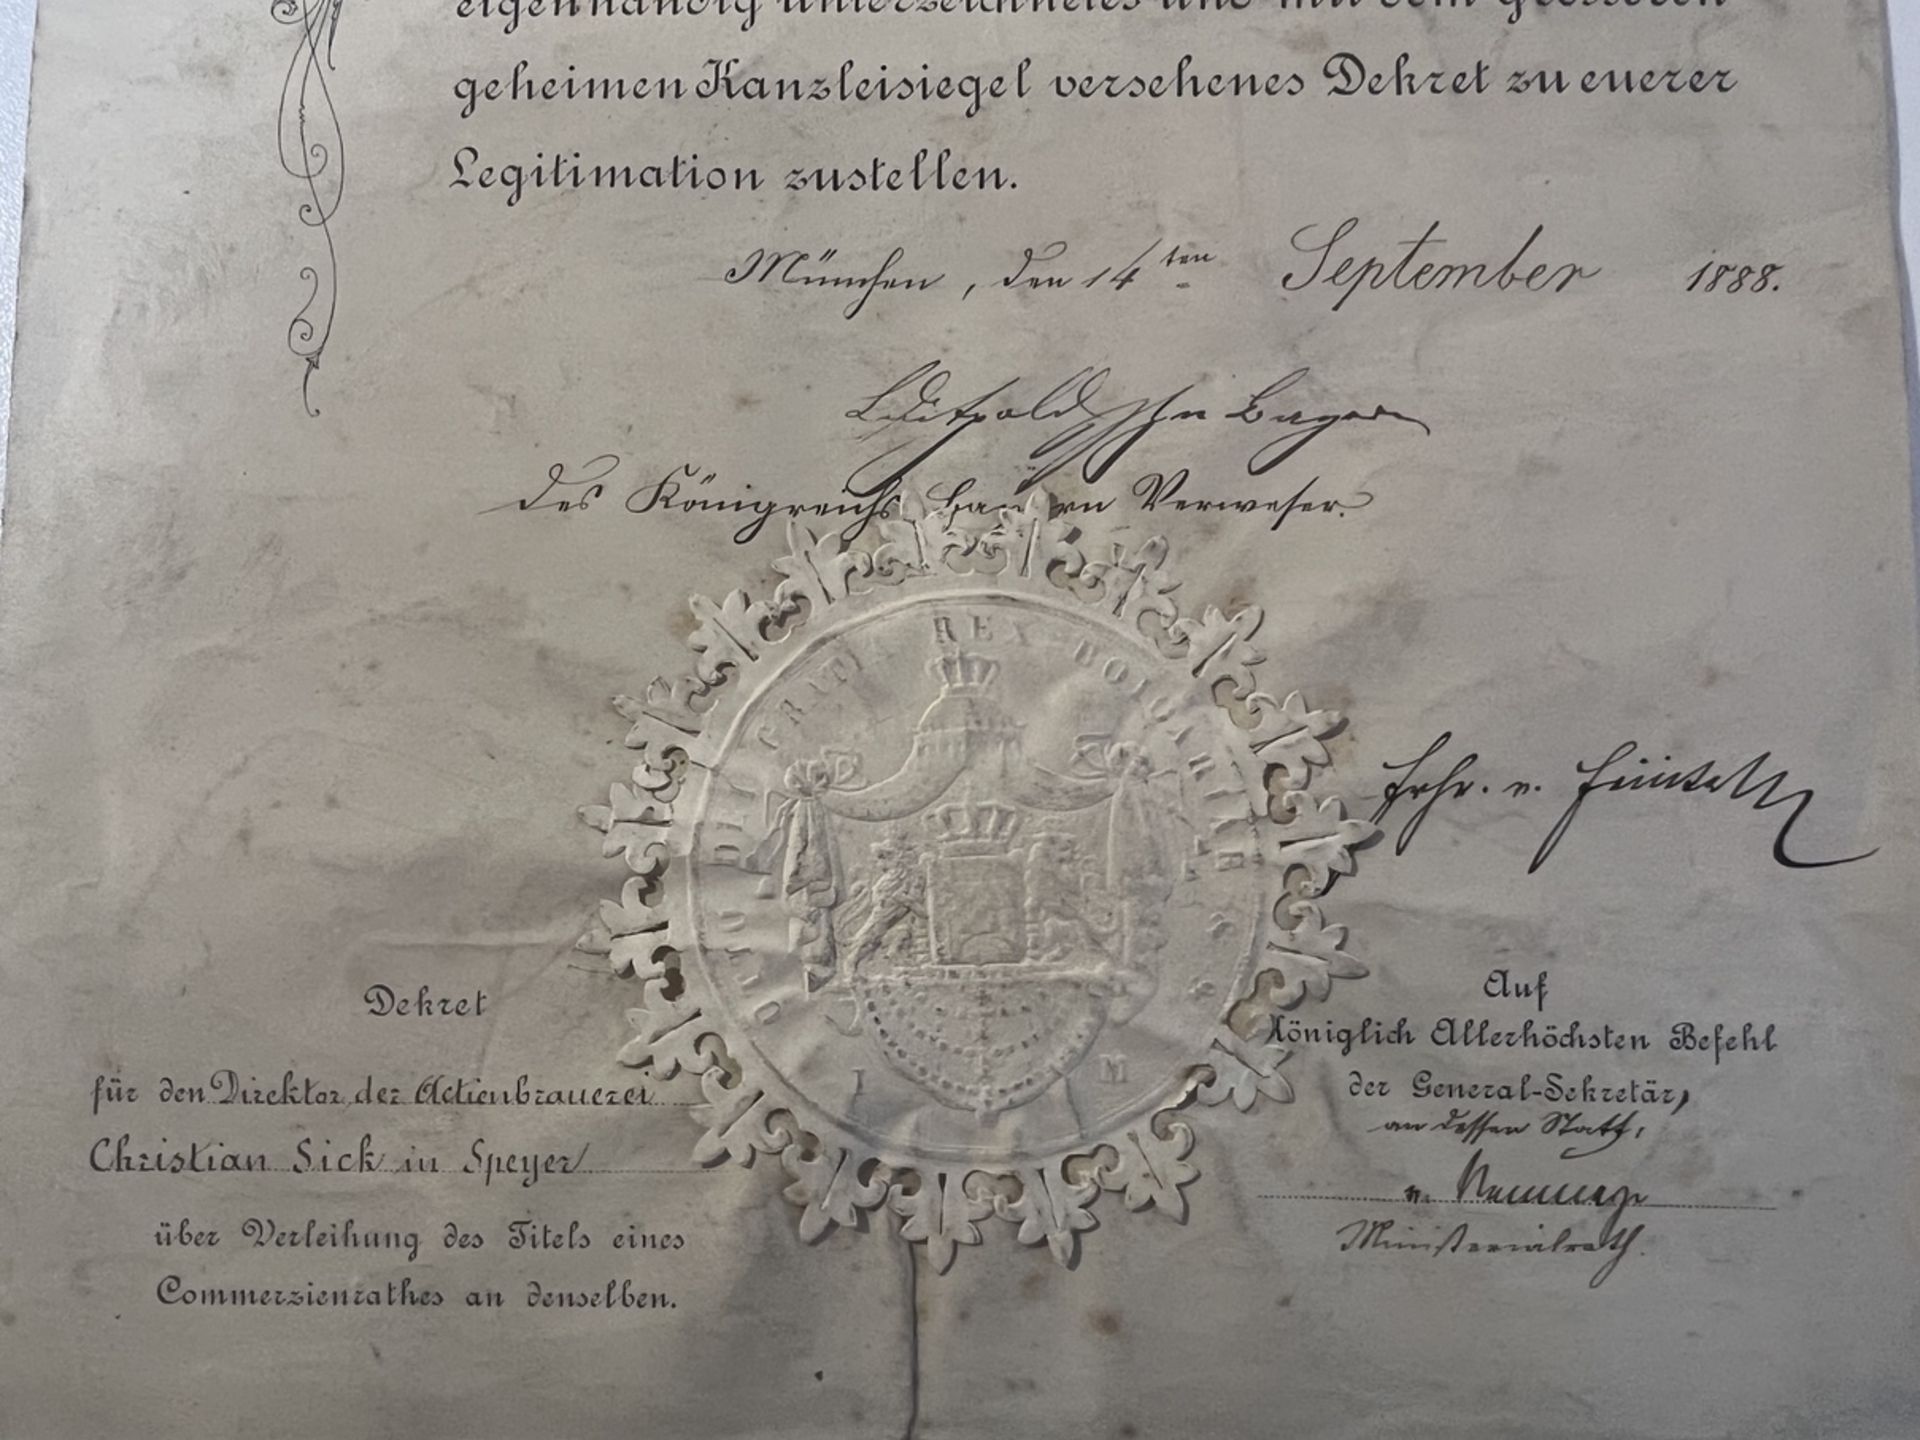 eigenhändig unterzeichnetes und mit dem grösseren
geheimen Kanzleisiegel versehenes Dekret zu euerer
Legitimation zustellen.
München, den 14ten September 1888.
Luitpold Prinz von Bayern
des Königreichs Bayern Verweser.
LUDOVICUS II DEI GRATIA REX BOIOARIAE
Frhr. v.
Dekret
für den Direktor der Actienbrauerei
Christian Sick in Speyer
über Verleihung des Titels eines
Commerzienrathes an denselben.
Auf
Königlich Allerhöchsten Befehl
der General-Sekretär,
an dessen Statt,
v.
Ministerialrath.